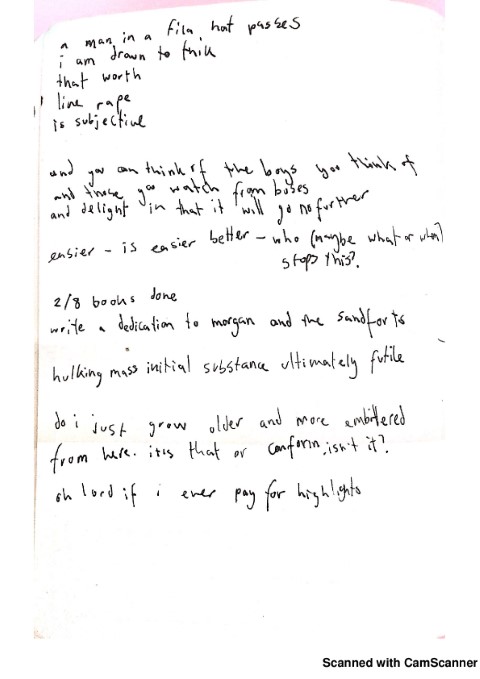 a man in a fila hat passes
i am drawn to think
that worth
line rape
is subjective
and you can think of the boys you think of
and those you watch from buses
and delight in that it will go no further
easier - is easier better - who (maybe what or when)
stops this?
2/8 books done
write a dedication to morgan and the sandforts
hulking mass initial substance ultimately futile
do i just grow older and more embittered
from here. it is that or conform, isn't it?
oh lord if i ever pay for highlights
Scanned with CamScanner